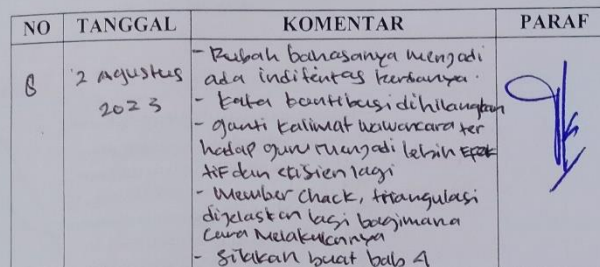 NO TANGGAL KOMENTAR PARAF
8 2 Agustus 2023
- Rubah bahasanya menjadi
ada indifentas kerjanya.
- kata kontibusi dihilangkan
- ganti kalimat wawancara ter
hadap guru menjadi lebih Efek
tif dan efisien lagi
- Member chack, triangulasi
dijelaskan lagi bagimana
cara Melakukannya
- Silakan buat bab 4